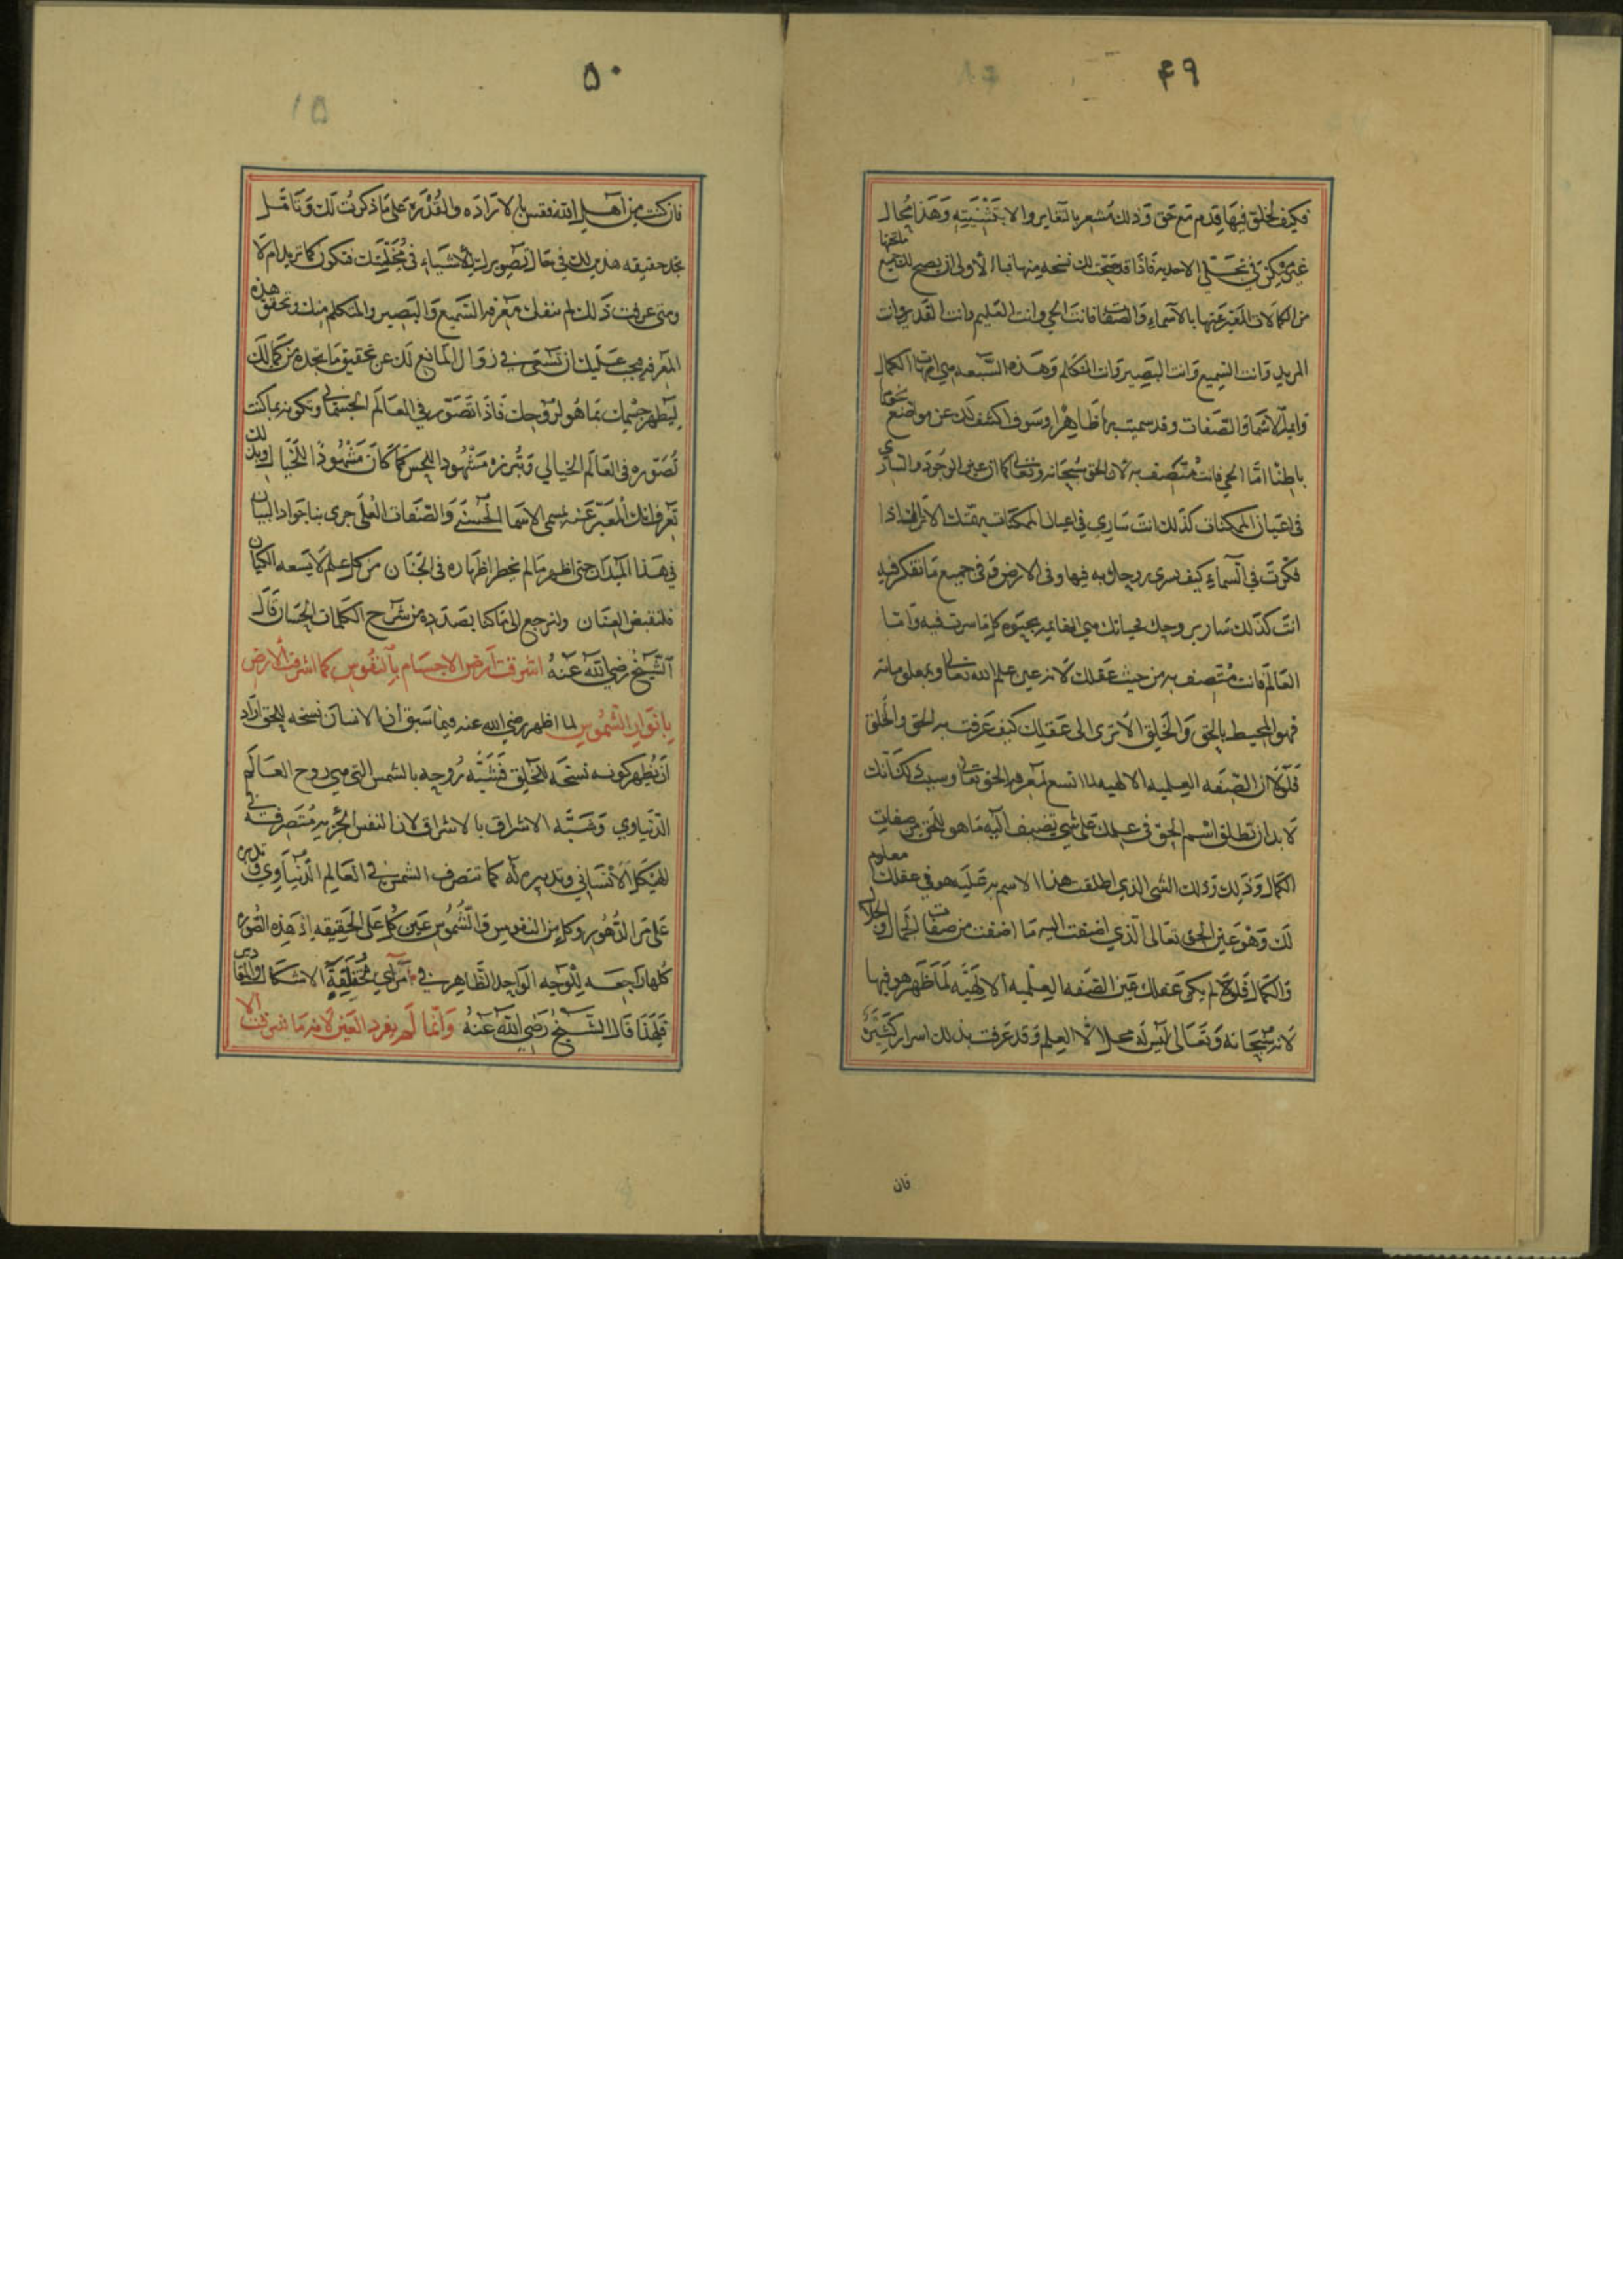 ۴۹
فكيف للخلق فيها قدم مع حق وذلك مشعر بالتغاير والاثنينية وهذا محال
غير ممكن في تجلي الاحدية فاذا قد صحت لك نسخه منها فبالاولى ان يصح لك جميع ما تحتها
من الكمالات المعبر عنها بالاسماء والصفات فانت الحي وانت العليم وانت القدير وانت
المريد وانت السميع وانت البصير وانت المتكلم وهذه السبعه هي امهات الكمال
وايمة الاسماء والصفات وقد سميت بها ظاهرا وسوف اكشف لك عن موضع
باطنا اما الحي فانت متصف به لان الحق سبحانه وتعالى كما ان عين الوجود والساري
في اعيان الممكنات كذلك انت ساري في اعيان الممكنات الا ترى انك اذا
فكرت في السماء كيف تسري روحك به فيها وفي الارض وفي جميع ما تفكر فيه
انت كذلك سار بروحك بحياتك هي القايمه بحيوه كل ما سرت فيه واما
العالم فانت متصف به من حيث عقلك لانه عين علم الله تعالى وبمعلوماته
فهو المحيط بالحق والخلق الا ترى الى عقلك كيف عرفت به الحق والخلق
فلولا ان الصفه العلميه الالهيه لما اتسع لمعرفه الحق تعالى وسبب ذلك انك
لا بد ان تطلق اسم الحق في علمك على شي تضيف اليه ما هو للحق من صفات
الكمال وذلك الشي الذي اطلقت هذا الاسم به عليه هو في عقلك معلوم
لك وهو عين الحق تعالى الذي اضفت اليه ما اضفت من صفات الجمال والجلال
والكمال فلو لم يكن عقلك عين الصفه العلميه الالهيه لما ظهر هو فيها
لانه سبحانه وتعالى ليس له محلا الا العلم وقد عرفت بذلك اسرار كثيره
فان
۵۰
فان كنت من اهل الله فقس بالاراده والقدره على ما ذكرت لك وتامل
تجد حقيقه هذين لك في حال تصويرك للاشياء في مخيلتك فتكون كما تريد ام لا
ومتى عرفت ذلك لم تنفك معرفه السميع والبصير والمتكلم منك وتحقق هذه
المعرفه يجب عليك ان تسعى في زوال المانع لك عن تحقيق ما تجده من كمالك
ليظهر جسمك بما هو لروحك فاذا تصور في العالم الجسماني وتكونه بما كنت
تصوره في العالم الخيالي وتبرزه مشهودا للحس كما كان مشهودا للخيال وبذلك
تعرف انك المعبر عنه بمسمى الاسما الحسنى والصفات العلى جرى بنا جواد البيان
في هذا الميدان حتى اظهر ما لم يخطر اظهاره في الجنان من كل علم لا يسعه الكيان
فلنقبض العنان ولنرجع الى ما كنا بصدده من شرح الكلمات الحسان قال
الشيخ رضي الله عنه اشرقت ارض الاجسام بالنفوس كما اشرقت الارض
بانوار الشموس لما اظهر رضي الله عنه فيما سبق ان الانسان نسخه للحق اراد
ان يظهر كونه نسخه للخلق فشبه روحه بالشمس التي هي روح العالم
الدنياوي وشبه الاشراق بالاشراق لان النفس الجزيه متصرفه في
الهيكل الانساني وتدبيره له كما تتصرف الشمس في العالم الدنياوي وتدبره
على مر الدهور وكل من النفوس والشموس عين كل على الحقيقه اذ هذه الصوره
كلها راجعه للوجه الواحد الظاهر في مرائي مختلفة الاشكال والمقادير
فلهذا قال الشيخ رضي الله عنه وانما لم يفرد العين لانه ما شرقت الا